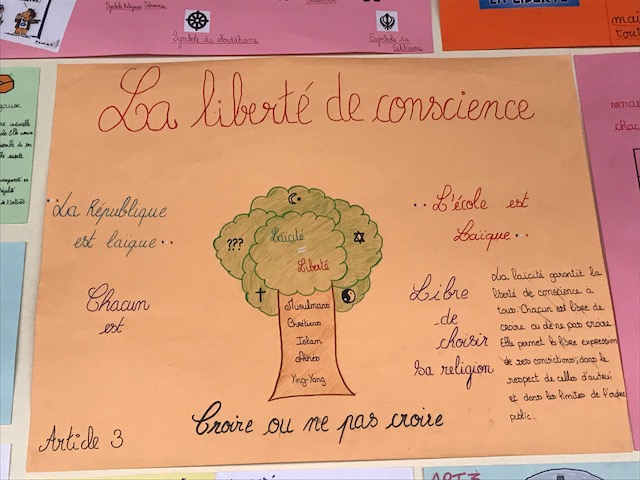 Symbole du Bouddhisme
Symbole du
Sikhisme
LA LIBERTÉ
mai
tout
ARTICLE
chac
La liberté de conscience
"La République
est laïque"
Chacun
est
???
Laïcité
=
Liberté
Musulmans
Chrétiens
Islam
Athéo
Ying-Yang
"L'école est
Laïque"
Libre
de
choisir
sa religion
La laïcité garantit la
liberté de conscience a
tous. Chacun est libre de
croire ou de ne pas croire.
Elle permet la libre expression
de ses convictions, dans le
respect de celles d'autrui
et dans les limites de l'ordre
public.
Croire ou ne pas croire
Article 3